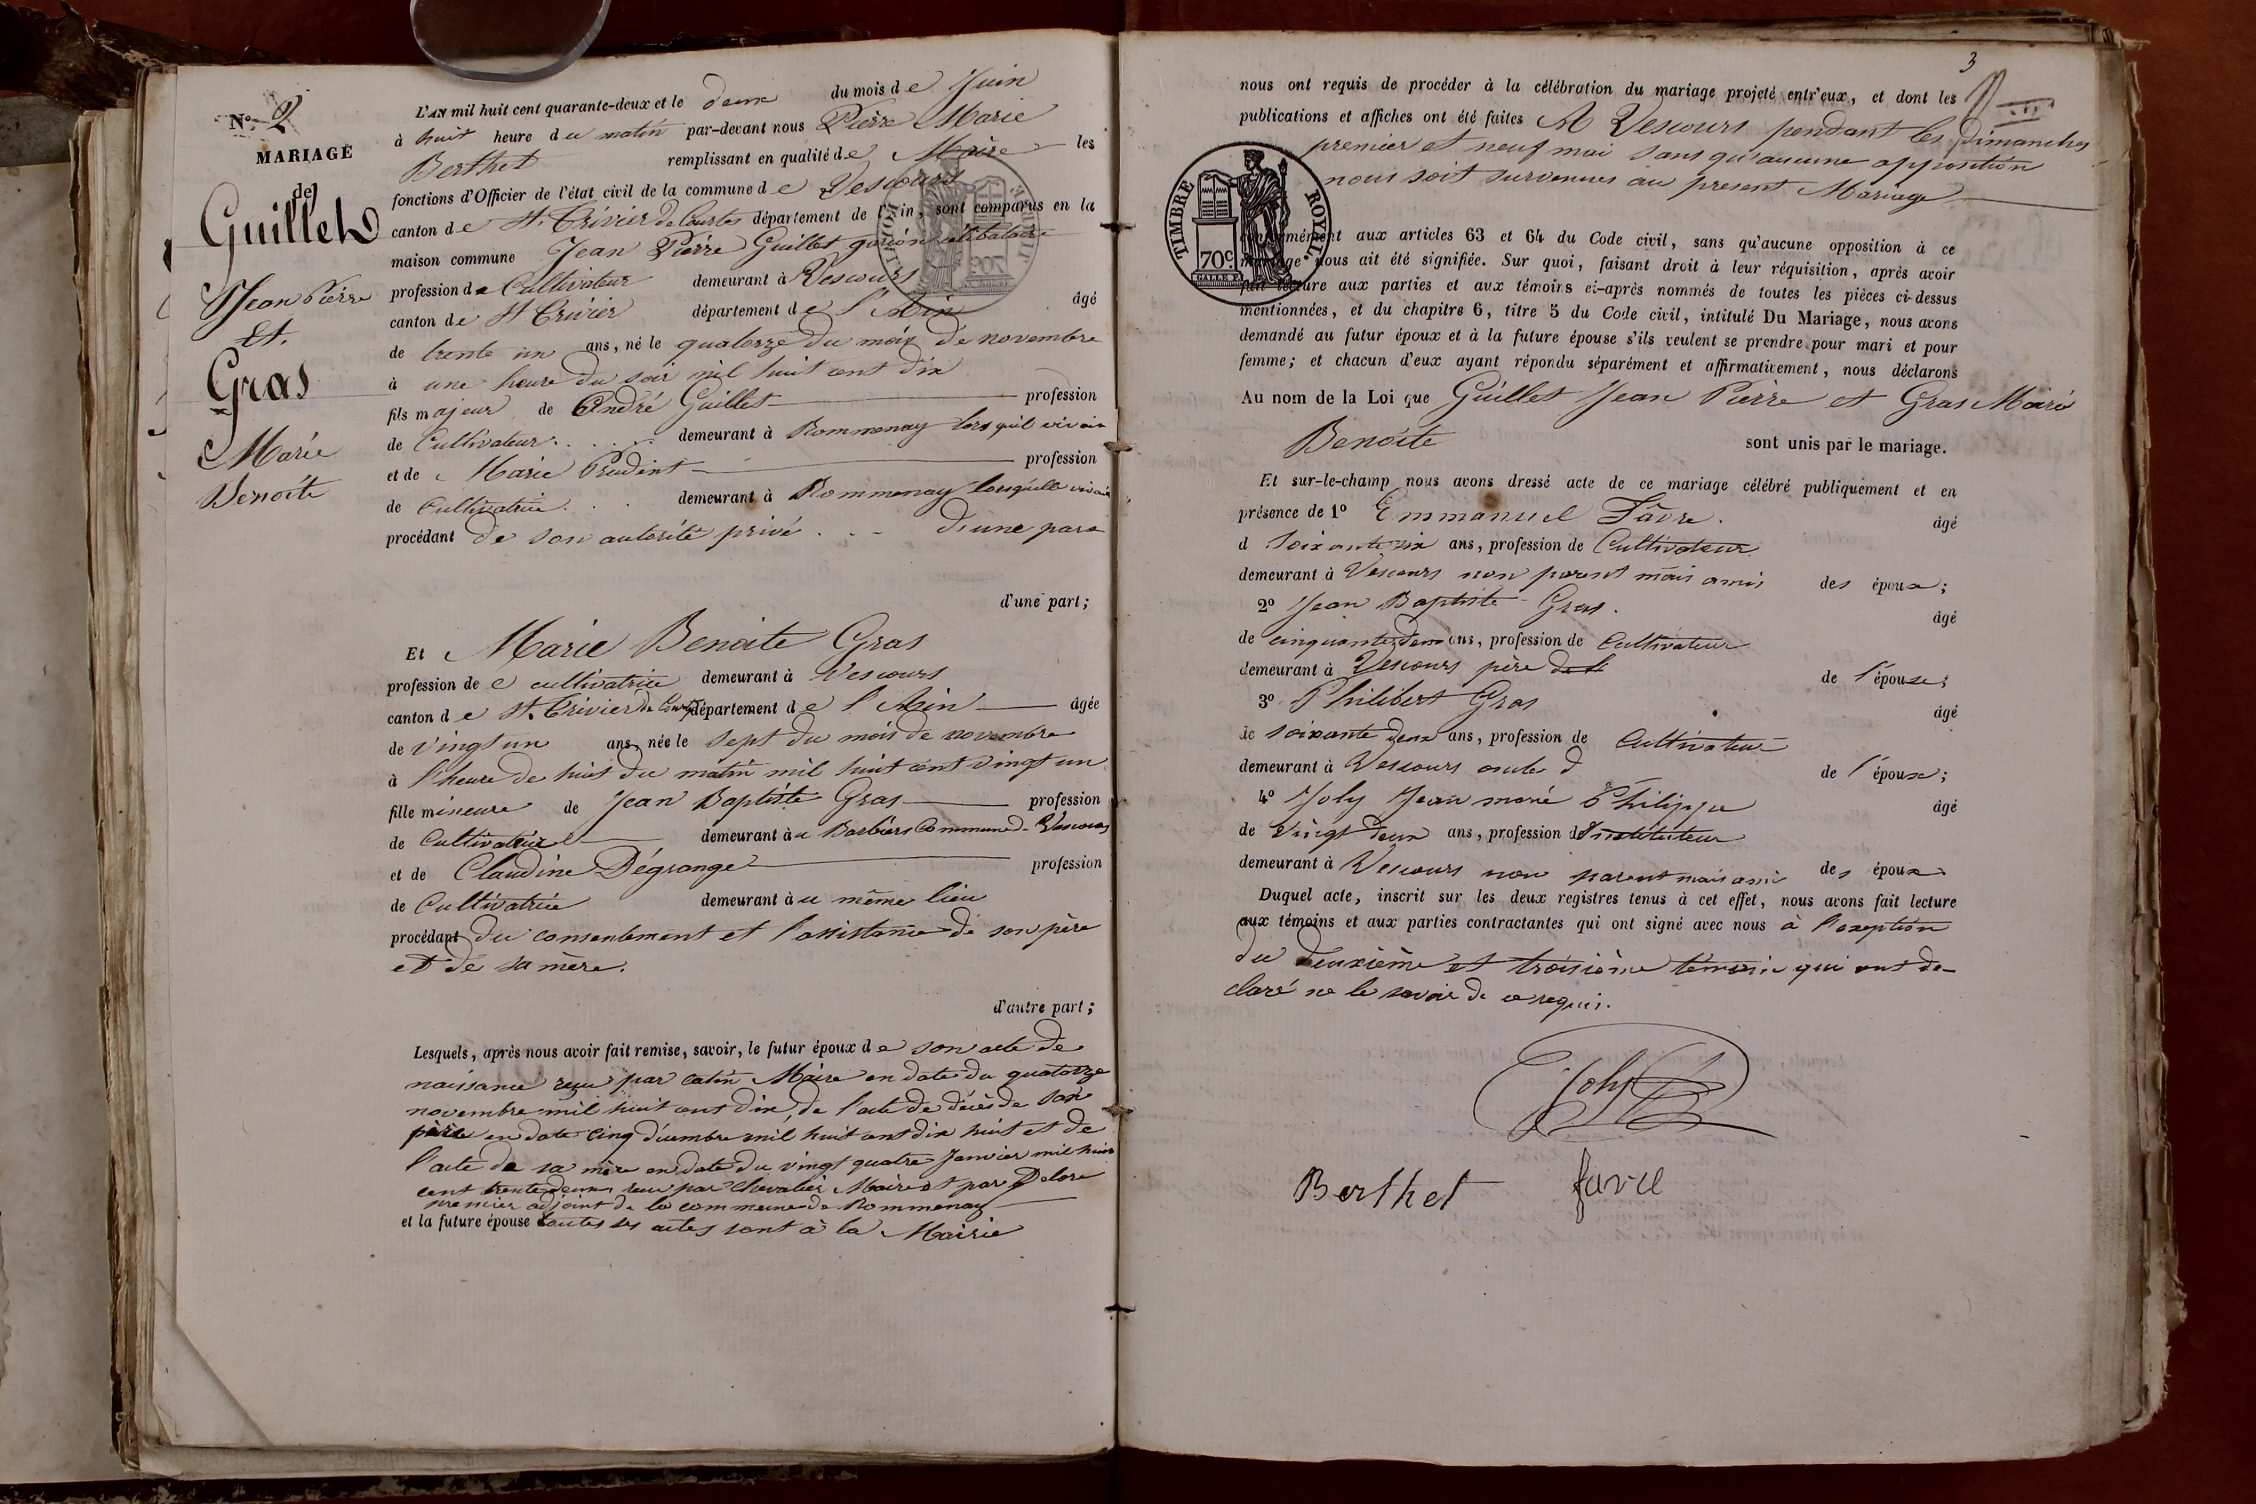 N° 2
MARIAGE
de
Guillet
Jean Pierre
Et.
Gras
Marie
Benoite
L'AN mil huit cent quarante-deux et le deux du mois de Juin
à huit heure du matin par-devant nous Pierre Marie
Berthet remplissant en qualité de Maire les
fonctions d'Officier de l'état civil de la commune de Vescours
canton de St. Trivier de Courtes département de l'Ain, sont comparus en la
maison commune Jean Pierre Guillet garçon célibataire
profession de Cultivateur demeurant à Vescours
canton de St Trivier département de l'Ain âgé
de trente un ans, né le quatorze du mois de novembre
à une heure du soir mil huit cent dix
fils majeur de André Guillet profession
de Cultivateur demeurant à Rommenay lors qu'il vivait
et de Marie Prudent profession
de Cultivatrice demeurant à Rommenay lorsqu'elle vivait
procédant de son autorité privé d'une part
d'une part;
Et Marie Benoite Gras
profession de cultivatrice demeurant à Vescours
canton de St. Trivier de Courtes département de l'Ain âgée
de vingt un ans, née le sept du mois de novembre
à l'heure de huit du matin mil huit cent vingt un
fille mineure de Jean Baptiste Gras profession
de Cultivateur demeurant au Barbiers Commune de Vescours
et de Claudine Dégrange profession
de Cultivatrice demeurant au même lieu
procédant du consentement et l'assistance de son père
et de sa mère.
d'autre part;
Lesquels, après nous avoir fait remise, savoir, le futur époux de son acte de
naissance reçu par catin Maire en date du quatorze
novembre mil huit cent dix, de l'acte de décès de son
père en date cinq décembre mil huit cent dix huit et de
l'acte de sa mère en date du vingt quatre Janvier mil huit
cent trente deux reçu par Chevalier Maire et par Delore
premier adjoint de la commune de Rommenay
et la future épouse toutes ses actes sont à la Mairie
3
nous ont requis de procéder à la célébration du mariage projeté entr'eux, et dont les
publications et affiches ont été faites A Vescours pendant les dimanches
premier et neuf mai sans qu'aucune opposition
nous soit survenues au present Mariage
TIMBRE ROYAL.
70c
conformément aux articles 63 et 64 du Code civil, sans qu'aucune opposition à ce
mariage nous ait été signifiée. Sur quoi, faisant droit à leur réquisition, après avoir
fait lecture aux parties et aux témoins ci-après nommés de toutes les pièces ci-dessus
mentionnées, et du chapitre 6, titre 5 du Code civil, intitulé Du Mariage, nous avons
demandé au futur époux et à la future épouse s'ils veulent se prendre pour mari et pour
femme; et chacun d'eux ayant répondu séparément et affirmativement, nous déclarons
Au nom de la Loi que Guillet Jean Pierre et Gras Marie
Benoite sont unis par le mariage.
Et sur-le-champ nous avons dressé acte de ce mariage célébré publiquement et en
présence de 1° Emmanuel Favre. âgé
d soixante six ans, profession de Cultivateur
demeurant à Vescours non parent mais amis des époux;
2° Jean Baptiste Gras. âgé
de cinquante deux ans, profession de Cultivateur
demeurant à Vescours père de l'épouse;
3° Philibert Gras âgé
de soixante deux ans, profession de Cultivateur
demeurant à Vescours oncle d de l'épouse;
4° Joly Jean marie Philippe âgé
de vingt deux ans, profession d'Instituteur
demeurant à Vescours non parent mais ami des époux
Duquel acte, inscrit sur les deux registres tenus à cet effet, nous avons fait lecture
aux témoins et aux parties contractantes qui ont signé avec nous à l'exeption
du deuxième et troisième témoin qui ont de-
claré ne le savoir de ce requis.
Joly
Berthet favre